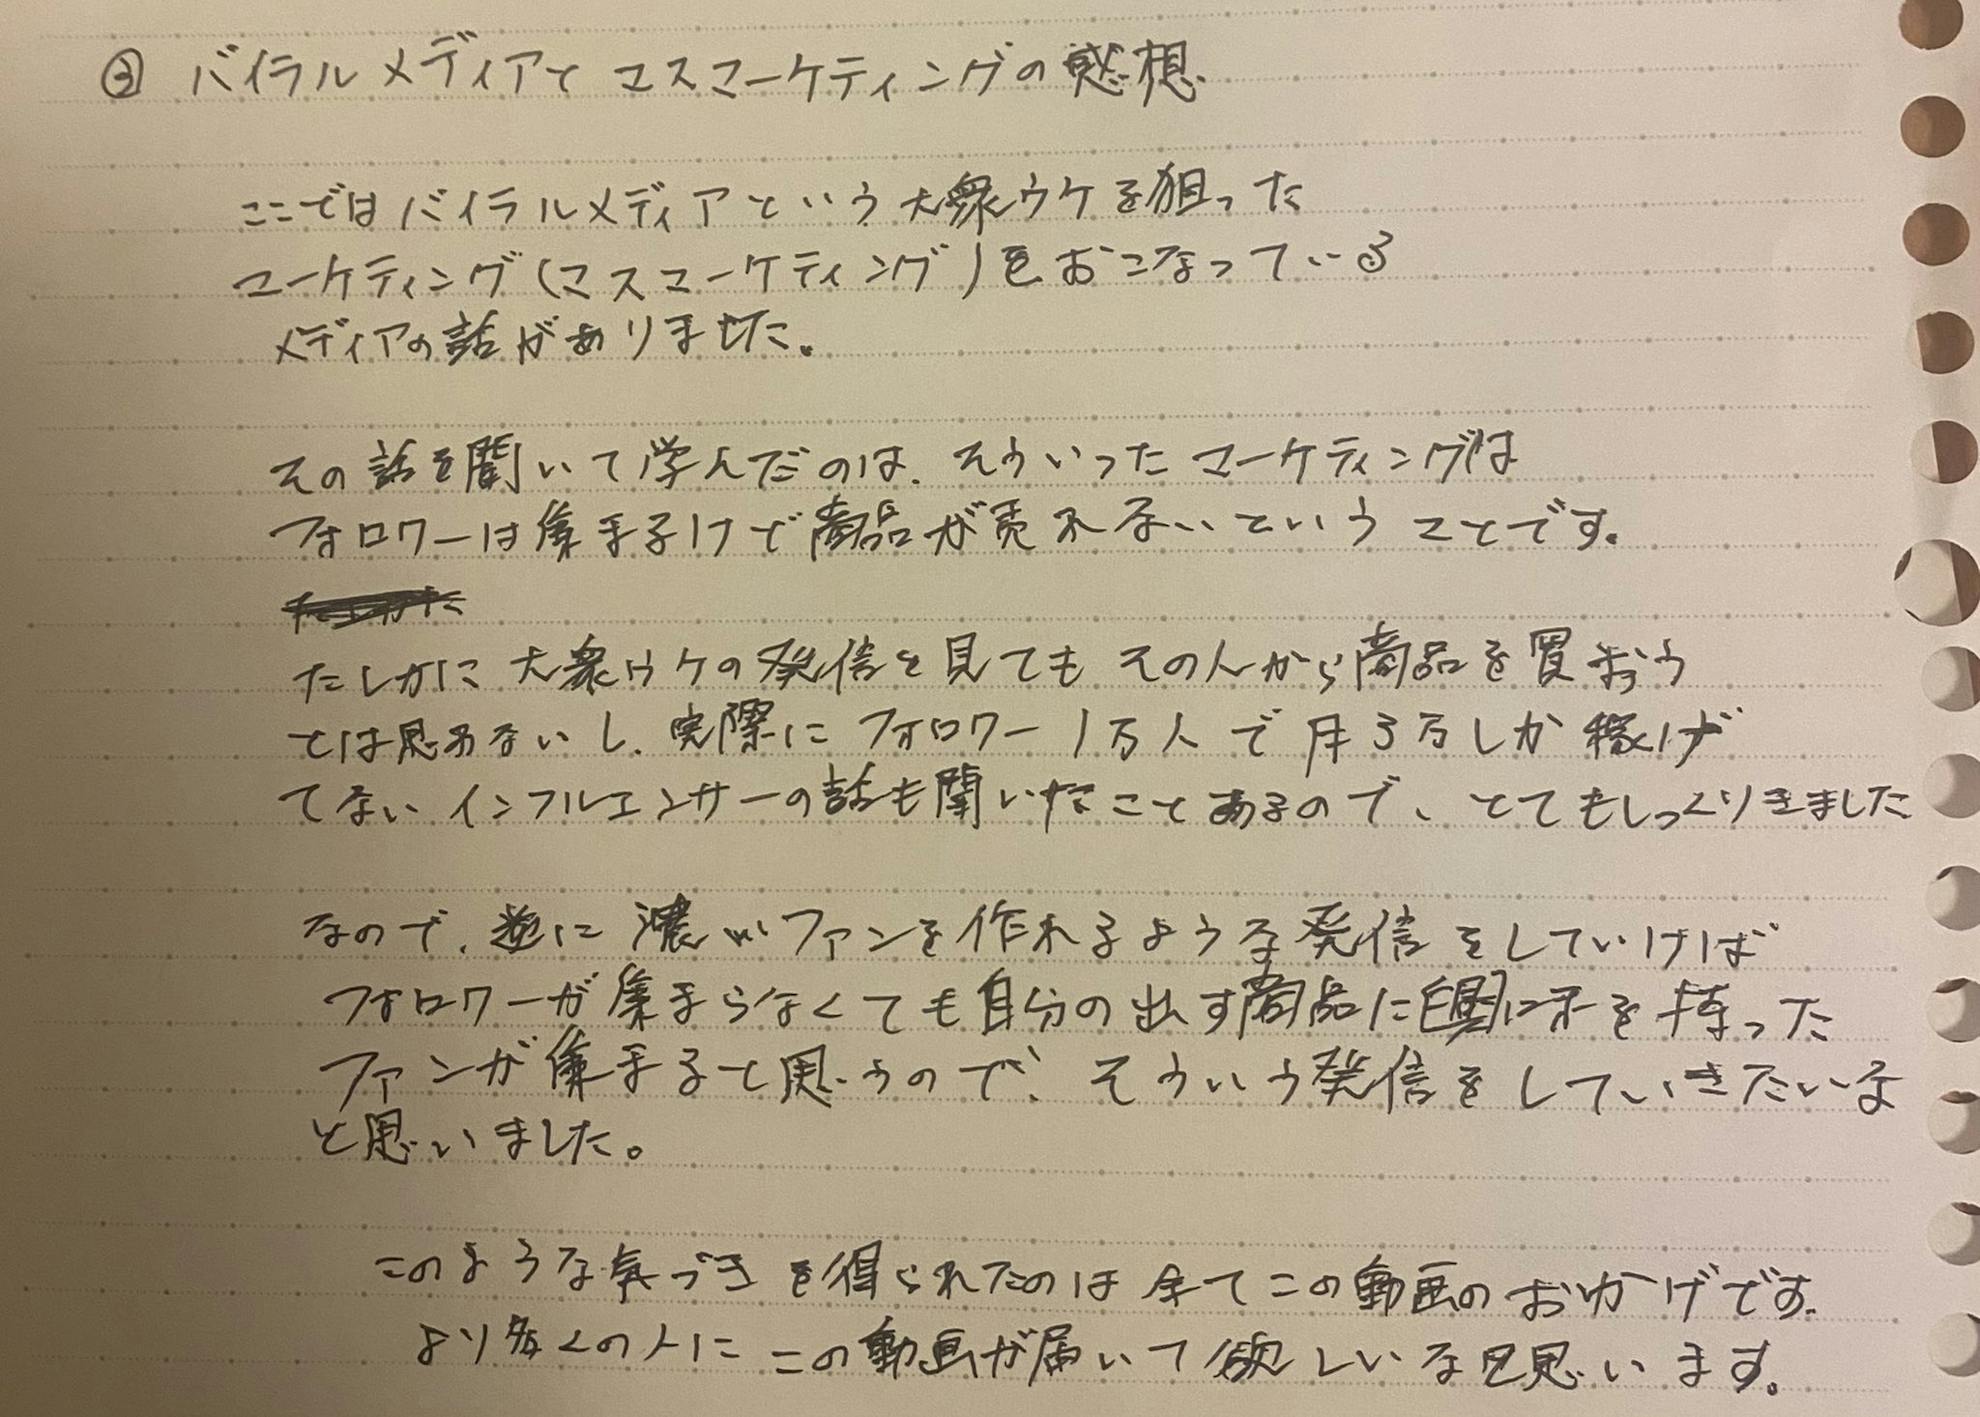 ③ バイラルメディアとマスマーケティングの感想
ここではバイラルメディアという大衆ウケを狙った
マーケティング(マスマーケティング)をおこなっている
メディアの話がありました。
その話を聞いて学んだのは、そういったマーケティングは
フォロワーは集まるけで商品が売れないということです。
たしかに大衆ウケの発信を見てもその人から商品を買おう
とは思わないし、実際にフォロワー1万人で月3万しか稼げ
てないインフルエンサーの話も聞いたことあるので、とてもしっくりきました
なので、逆に濃いファンを作れるような発信をしていければ
フォロワーが集まらなくても自分の出す商品に興味を持った
ファンが集まると思うので、そういう発信をしていきたいな
と思いました。
このような気づきを得られたのは全てこの動画のおかげです。
より多くの人にこの動画が届いて欲しいなと思います。